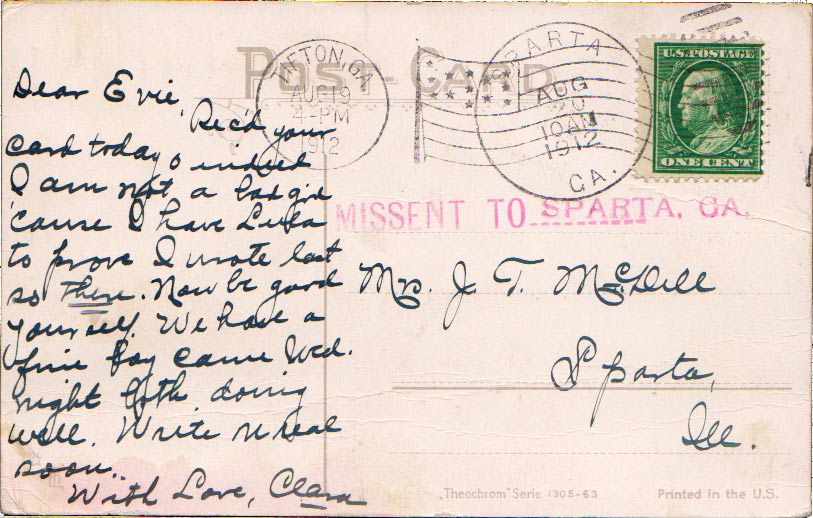 POST-CARD
TIFTON, GA
AUG 19
4-PM
1912
SPARTA
AUG
20
10 AM
1912
GA.
U.S. POSTAGE
ONE CENT
MISSENT TO SPARTA, GA.
Dear Evie,
Rec'd your
card today & indeed
I am not a bad girl
'cause I have Lula
to prove I wrote last
so there. Now be good
yourself. We have a
fine boy came Wed.
night both doing
well. Write n real
soon.
With Love, Clara
Mrs. J. T. McDill
Sparta,
Ill.
"Theochrom" Serie 1305-63
Printed in the U.S.